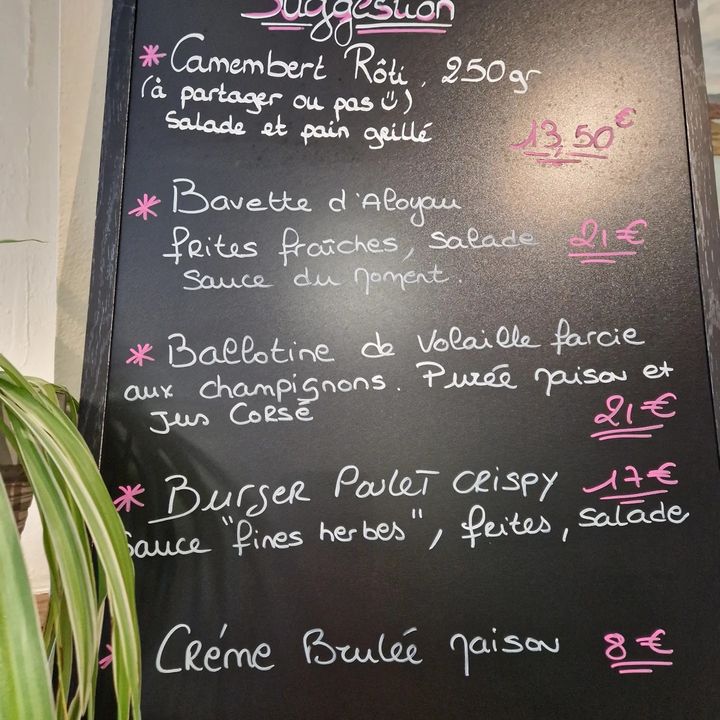 Suggestion
* Camembert Rôti, 250gr
(à partager ou pas ☺)
Salade et pain grillé 13,50€
* Bavette d'Aloyau
frites fraîches, salade 21€
Sauce du moment.
* Ballotine de Volaille farcie
aux champignons. Purée maison et
Jus Corsé 21€
* Burger Poulet CRISPY 17€
Sauce "fines herbes", frites, Salade
* Créme Brulée maison 8€